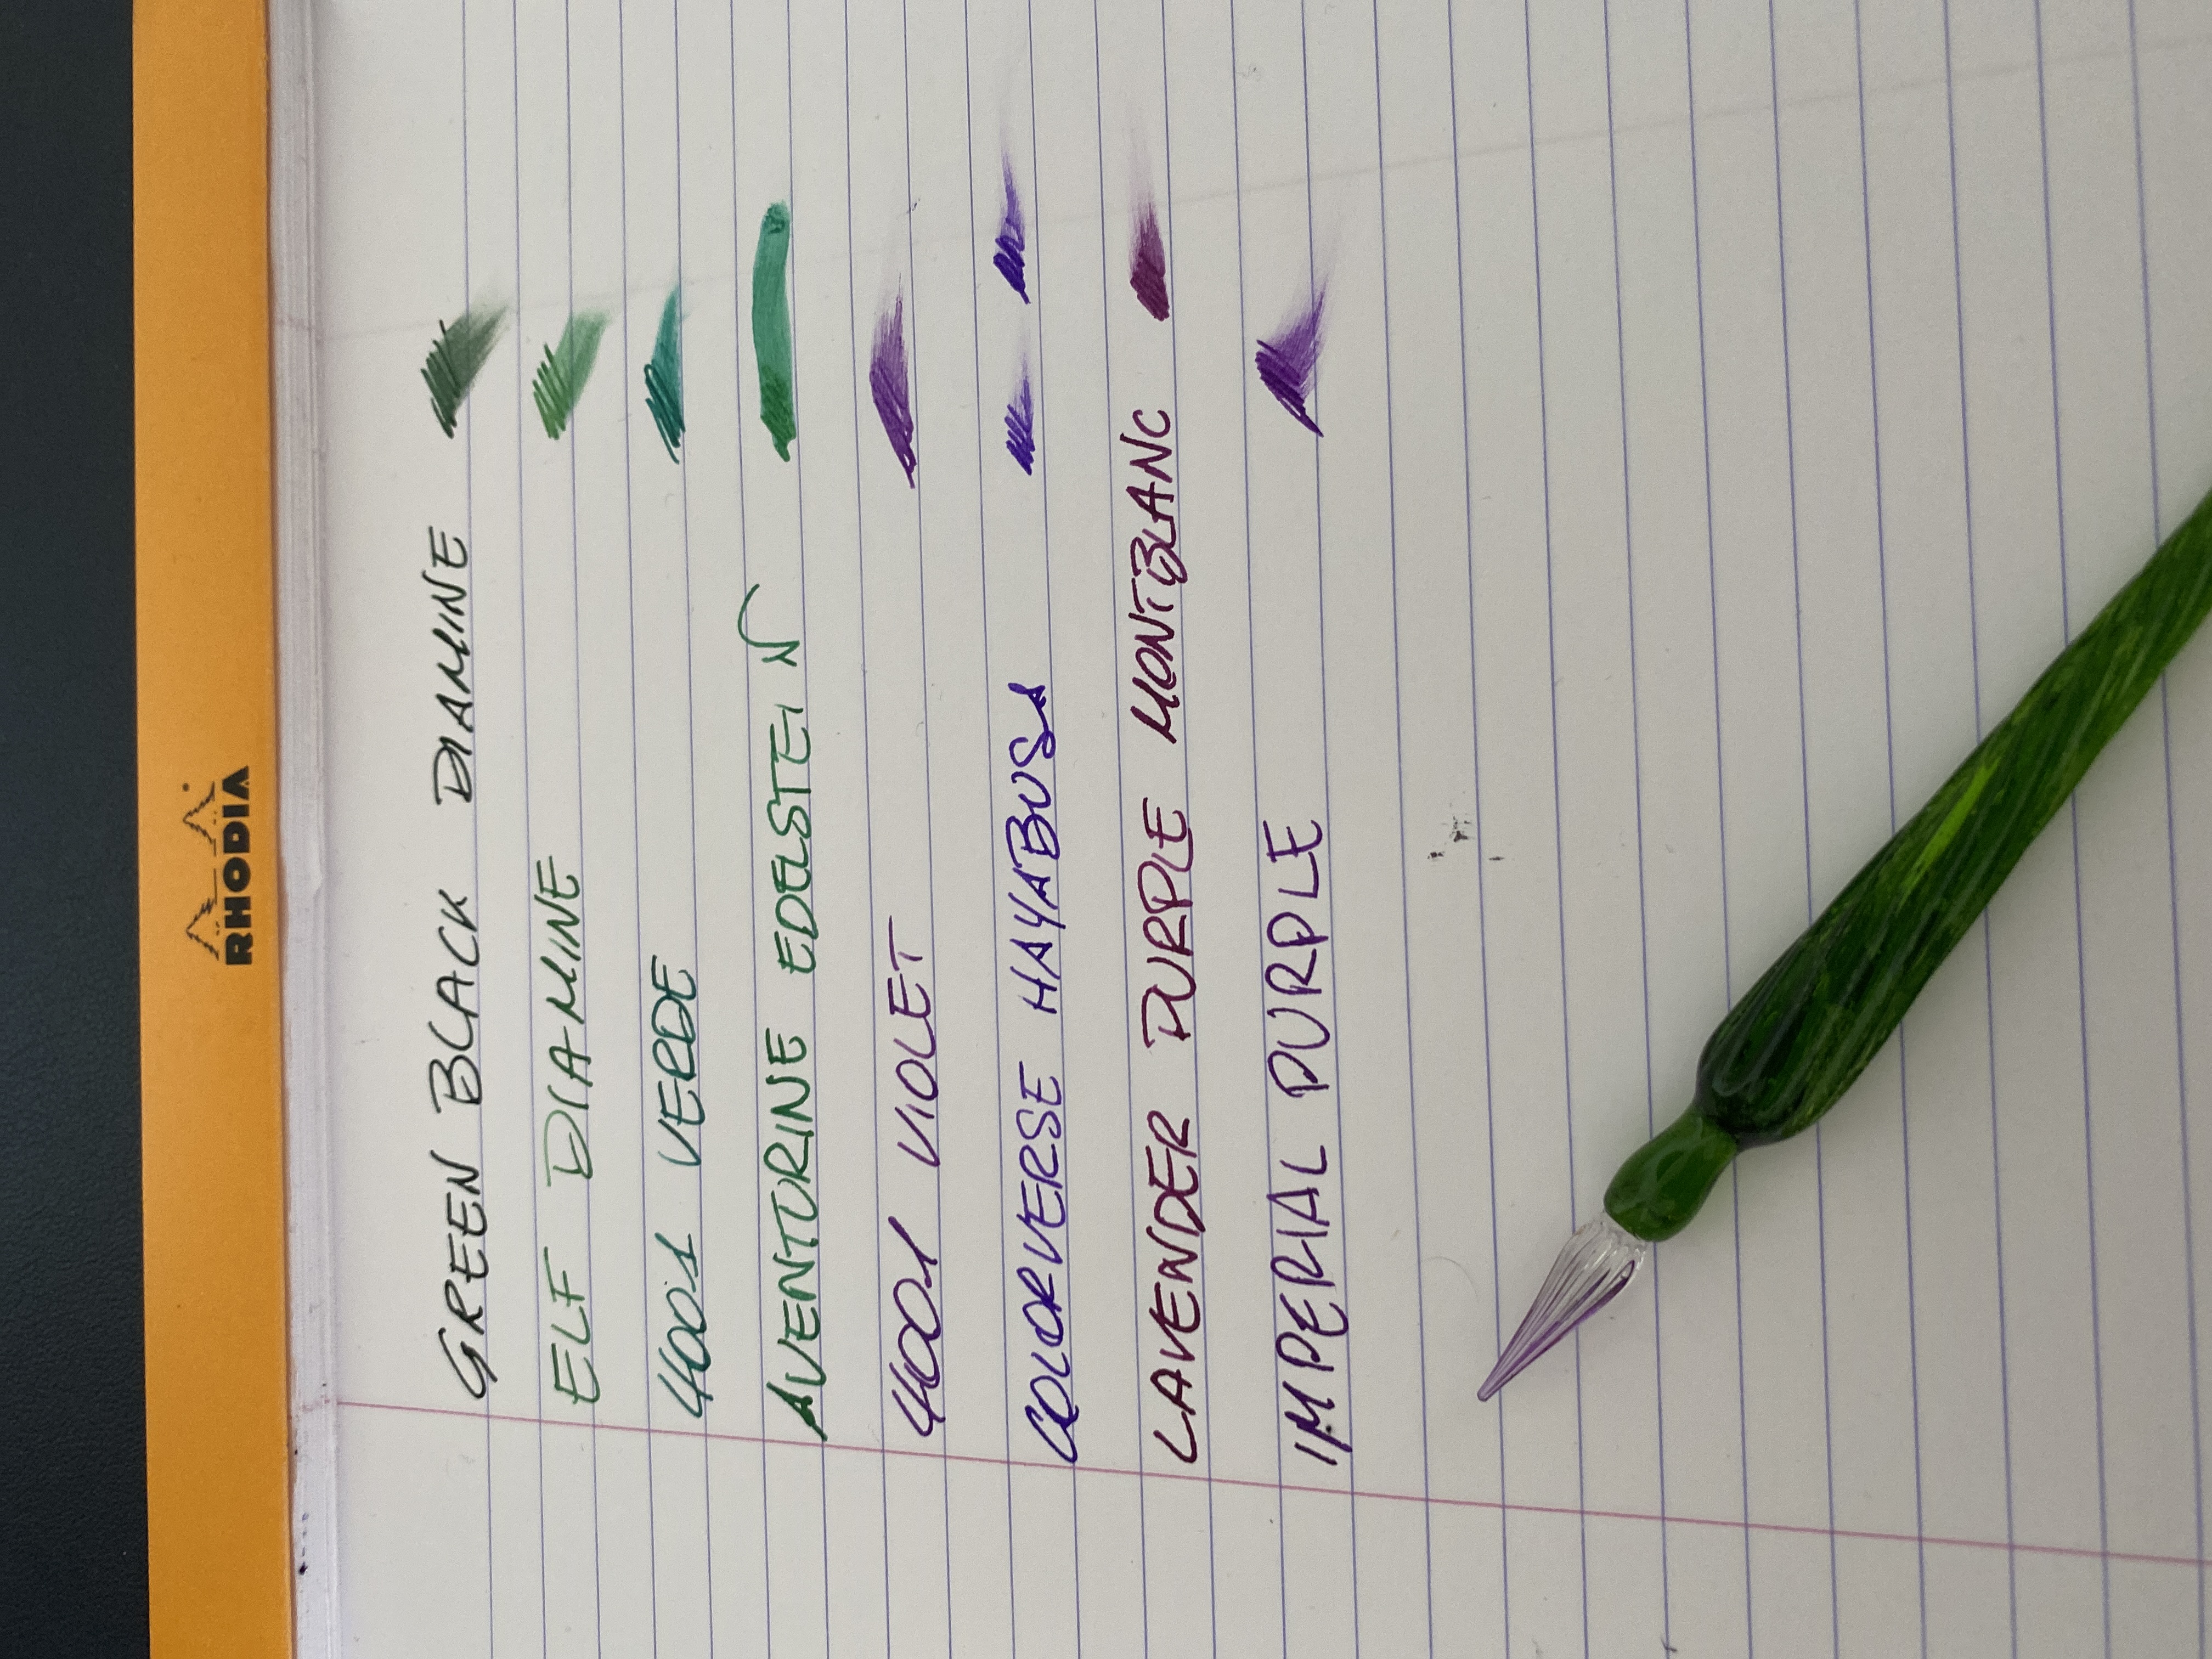 RHODIA
GREEN BLACK DIAMINE
ELF DIAMINE
4001 VERDE
AVENTURINE EDELSTEIN
4001 VIOLET
COLORVERSE HAYABUSA
LAVENDER PURPLE MONTBLANC
IMPERIAL PURPLE